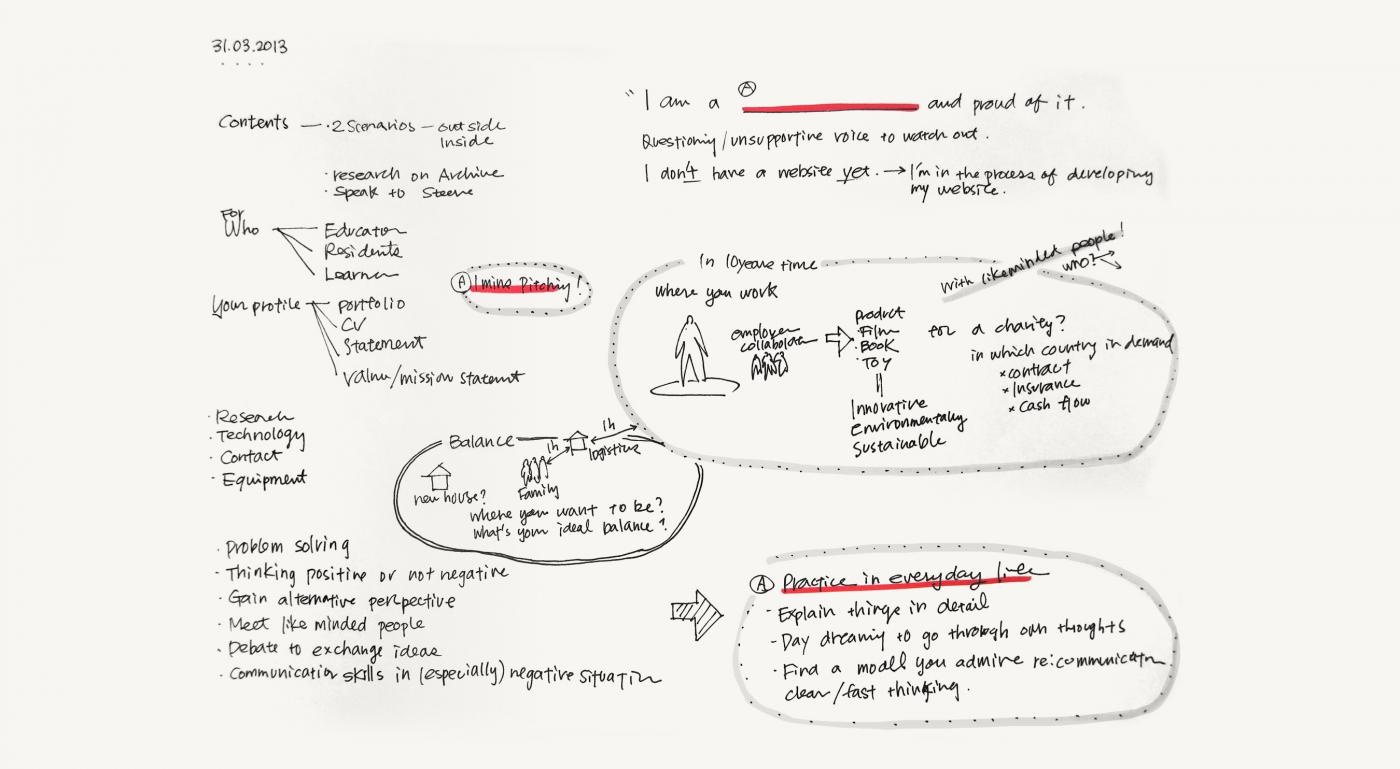 31.03.2013
Contents — · 2 Scenarios — outside
Inside
· research on Archive
· Speak to Steeve
For
Who
Educator
Residents
Learner
Your profile
portfolio
CV
Statement
Value/mission statemt
Ⓐ 1 mins Pitching!
· Research
· Technology
· Contact
· Equipment
Balance
1h
1h
logistics
new house?
Family
where you want to be?
what's your ideal balance?
· Problem solving
· Thinking positive or not negative
· Gain alternative perspective
· Meet like minded people
· Debate to exchange ideas
· Communication skills in (especially) negative situation
Ⓐ
"I am a and proud of it.
Questioning/unsupportive voice to watch out.
I don't have a website yet. → I'm in the process of developing
my website.
In 10 years time
with likeminded people!
who?
where you work
employer
collaborator
product
· Film
· Book
· Toy
Innovative
Environmentally
Sustainable
for a charity?
in which country in demand
× contract
× Insurance
× cash flow
Ⓐ Practice in everyday lives
- Explain things in detail
- Day dreaming to go through own thoughts
- Find a modell you admire re:communication
clear/fast thinking.